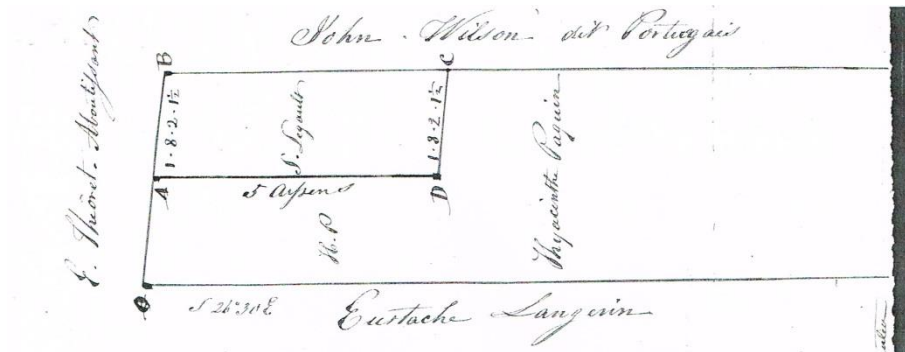 John Wilson dit Portugais
E. Théoret Aboutissant
B
C
1·8·2·1½
S. Legault
1·8·2·1½
Hyacinthe Paquin
A
5 Arpens
D
H. P
O
S 26°30 E
Eustache Langevin